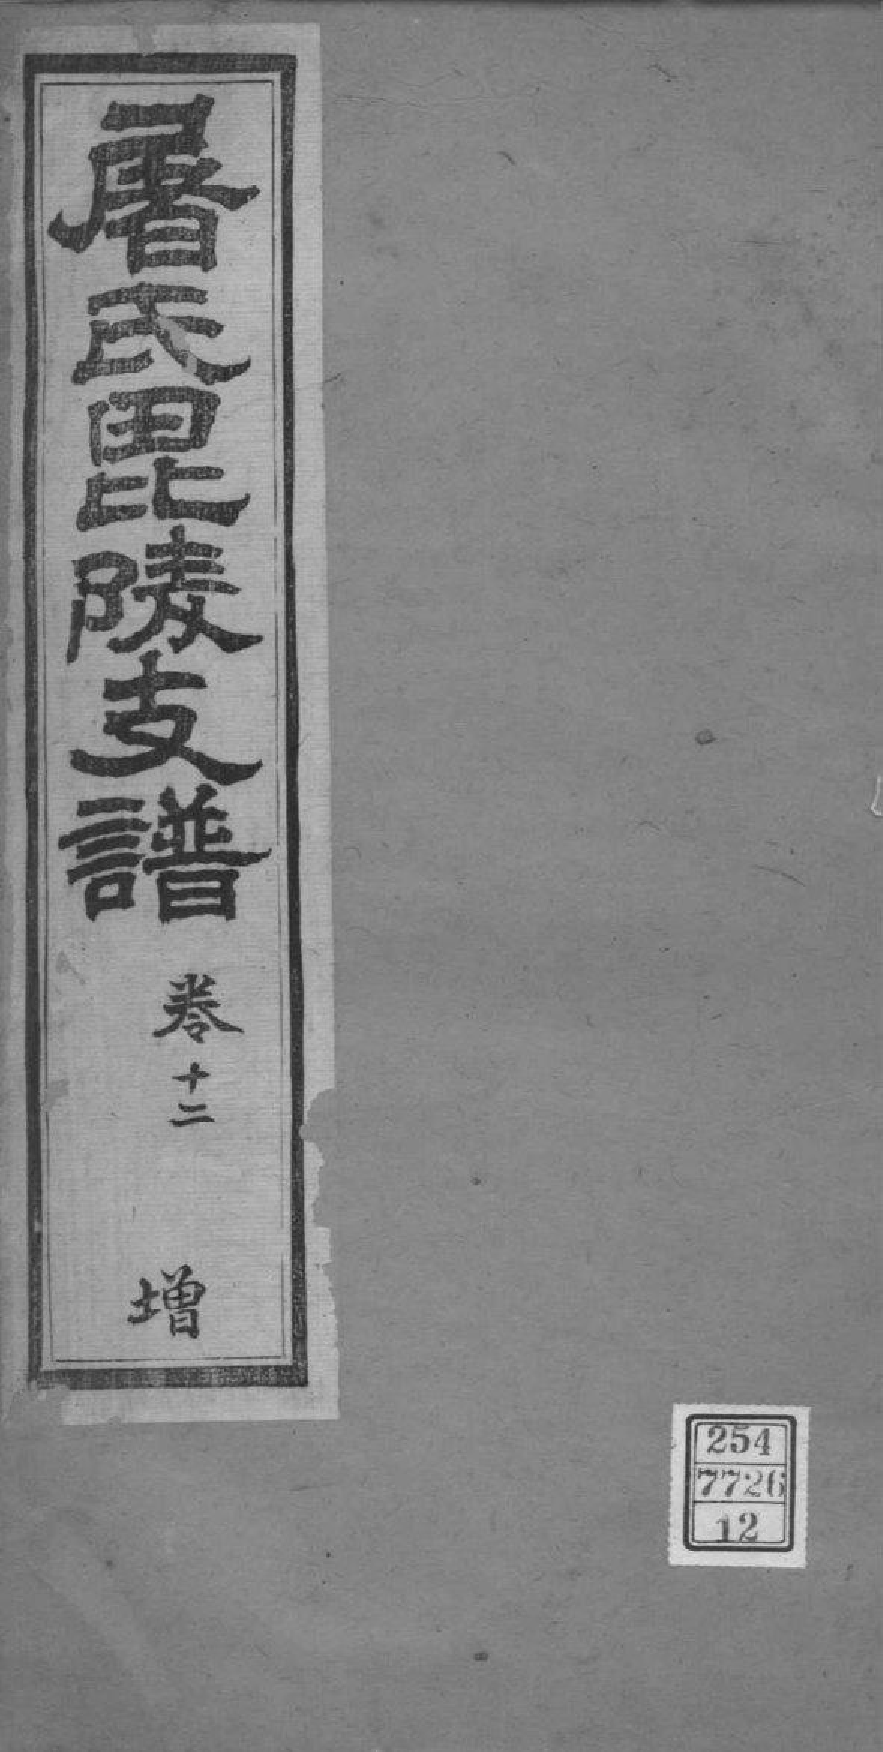 屠氏毘陵支譜
卷十二
增
254
7726
12